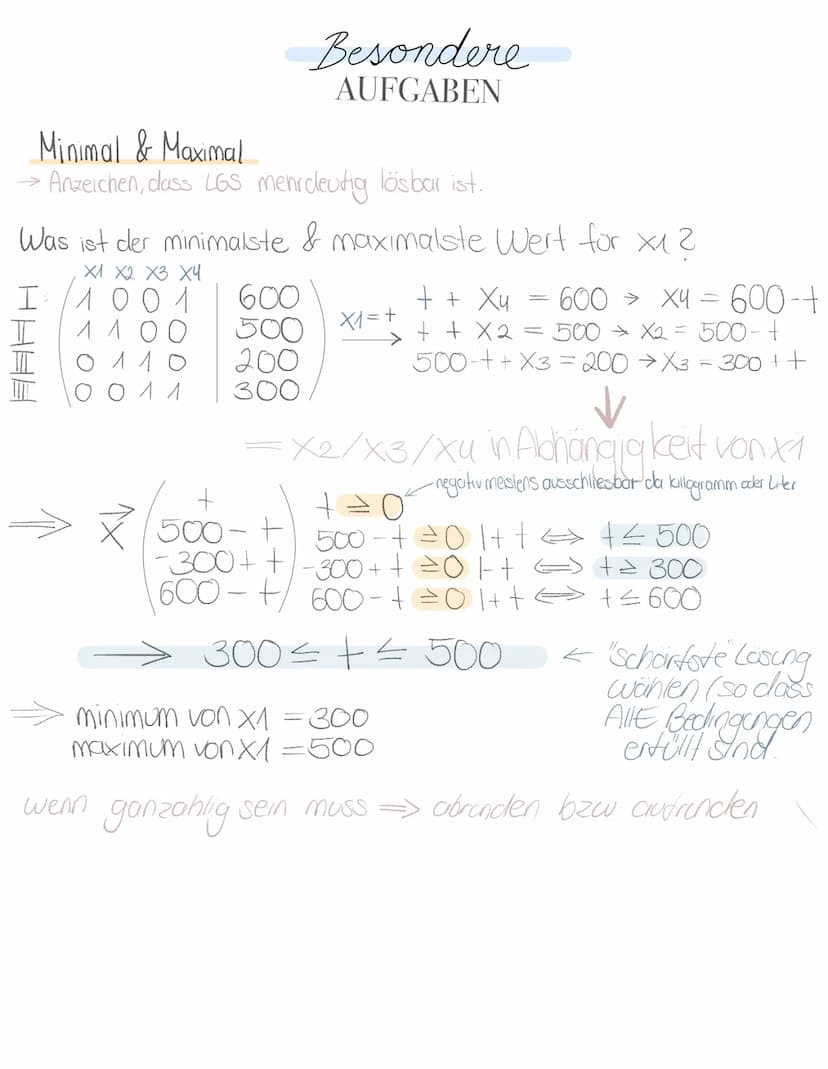 Besondere
AUFGABEN
Minimal & Maximal
→ Anzeichen, dass LGS mehrdeutig lösbar ist.
Was ist der minimalste & maximalste Wert für x1?
x1 x2 x3 x4
I 1 0 0 1 | 600 t + x4 = 600 → x4 = 600-t
II 1 1 0 0 | 500 x1=t t + x2 = 500 → x2 = 500-t
III 0 1 1 0 | 200 500-t + x3 = 200 → x3 = -300 + t
IIII 0 0 1 1 | 300
= x2/x3/x4 in Abhängigkeit von x1
negativ meistens ausschliesbar da killogramm oder Liter
t t ≥ 0
⇒ x⃗ 500 - t 500 - t ≥ 0 |+ t ⇔ t ≤ 500
-300 + t -300 + t ≥ 0 |- t ⇔ t ≥ 300
600 - t 600 - t ≥ 0 |+ t ⇔ t ≤ 600
→ 300 ≤ t ≤ 500 ← "schärfste" Lösung
wählen (so dass
ALLE Bedingungen
erfüllt sind.
⇒ minimum von x1 = 300
maximum von x1 = 500
wenn ganzahlig sein muss ⇒ abrunden bzw aufrunden